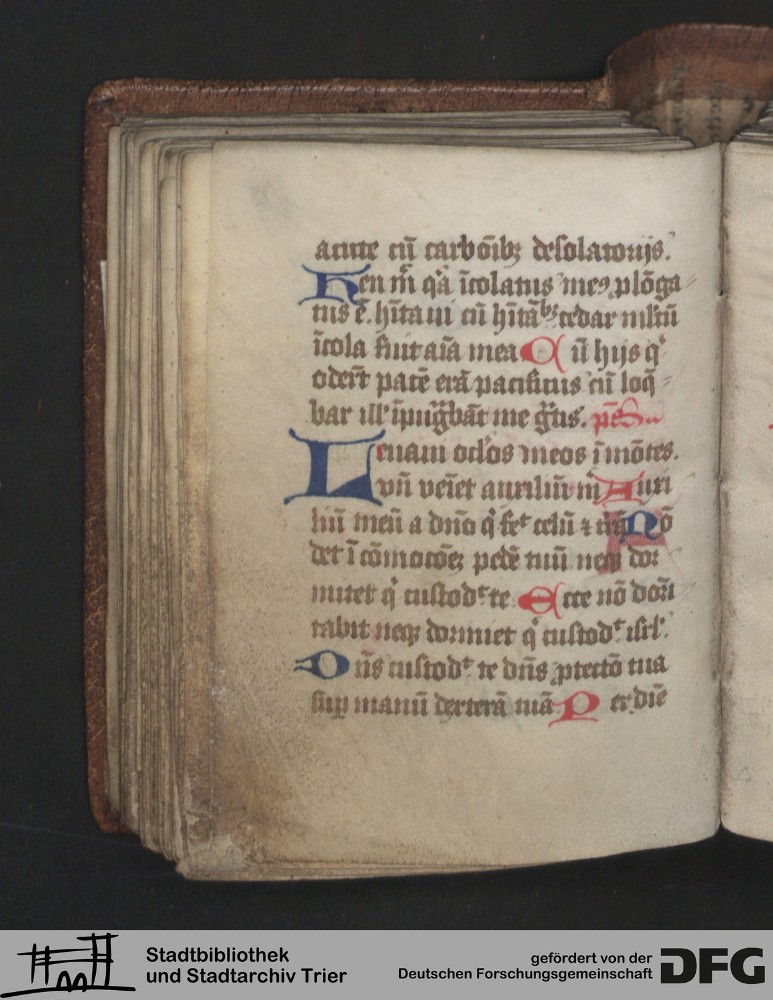 acute cū carbōibꝫ desolatorijs.
Heu m̄ qꝛ īcolatus meꝰ plōga
tus ē. hītaui cū hītā̄bꝫ cedar mltū
īcola fuit aīa mea Cū hijs qͥ
oder̄t pacē erā pacificus cū loq̄
bar ill' īpug̈bāt me g̈tis. pēS
Leuaui oclos meos ī mōtes.
vn̄ veīet auxiliū m̄ Auxi
liū meū a dn̄o q̄ feᵗ celū ⁊ t̄rā Nō
det ī cōmotōeꝫ pedē tuū neqꝫ dor
mitet qͥ custodᵗ te Ecce nō dorī
tabit neqꝫ dormiet qͥ custodᵗ isrl'.
Dn̄s custodᵗ te dn̄s ꝓtectō tua
suꝑ manū dexterā tuā Per diē
Stadtbibliothek
und Stadtarchiv Trier
gefördert von der
Deutschen Forschungsgemeinschaft
DFG